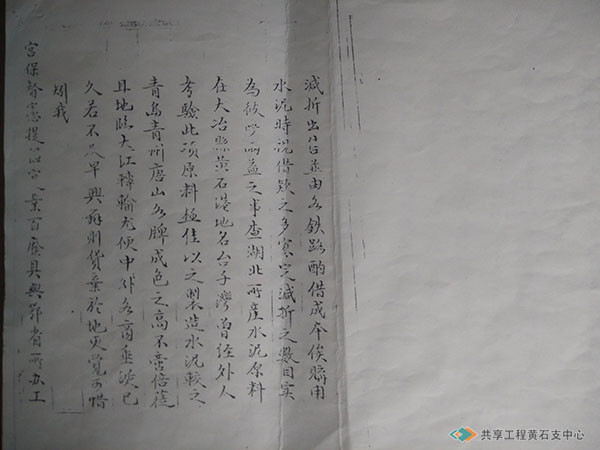 減折出售並由各鉄路酌借成本俟購用
水泥時視借款之多寡定減折之數目实
為彼此兩益之事查湖北所產水泥原料
在大冶縣黃石港地名台子灣曽经外人
考驗此項原料極佳以之製造水泥較之
青島青州唐山各牌成色之高不啻倍蓰
且地臨大江轉輸尤便中外各商垂涎已
久若不及早興辦則貨棄於地更覺可惜
我
宮保督憲提
業百廢具興鄂省所办工
共享工程黄石支中心